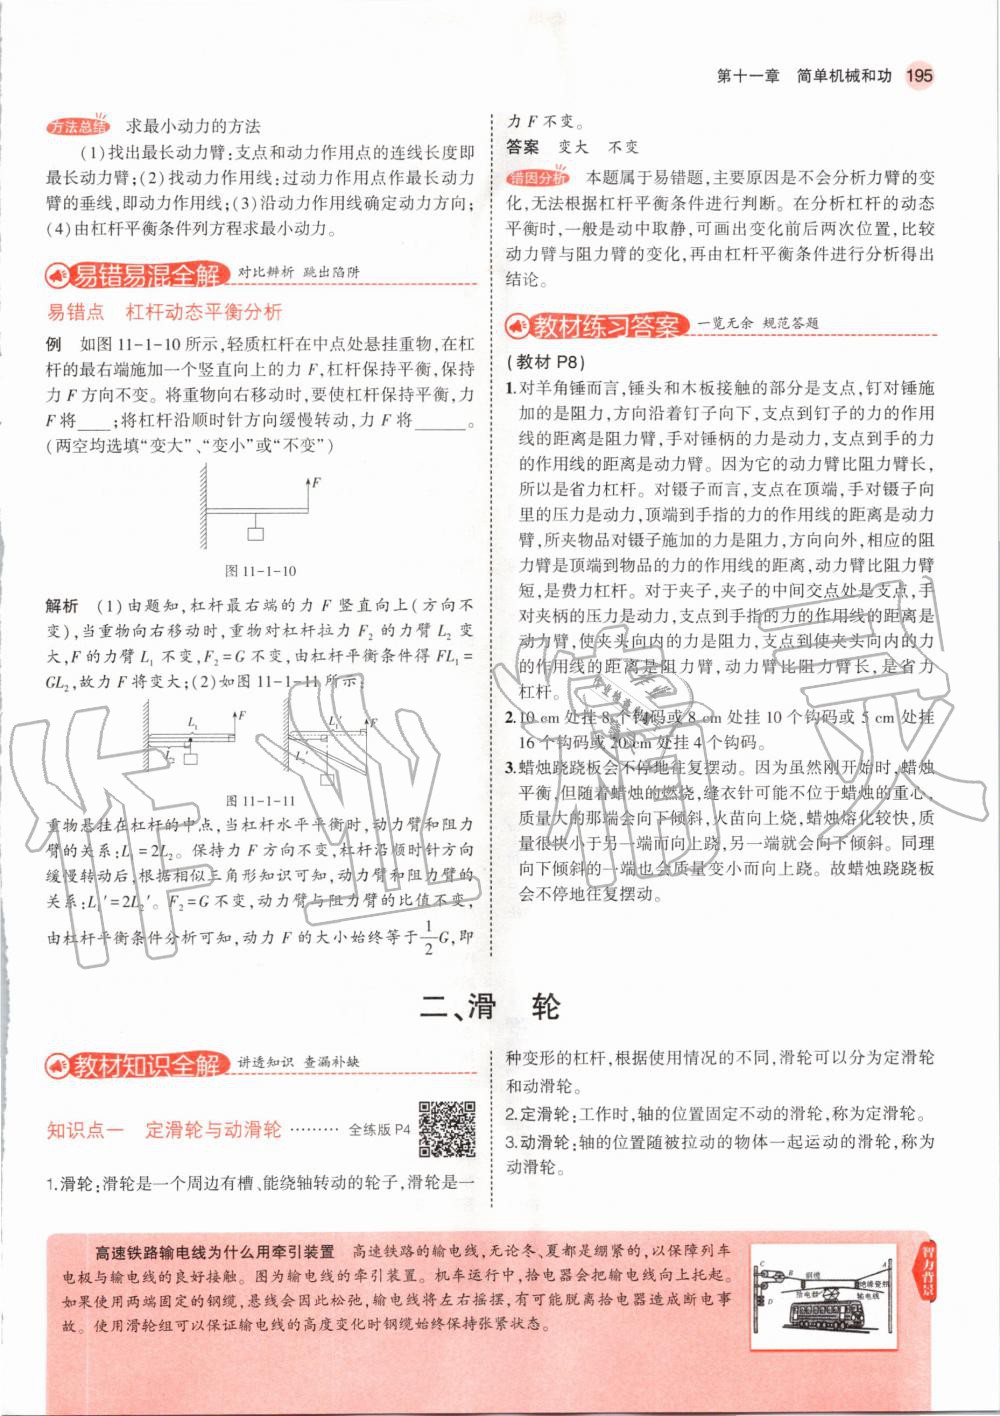 第十一章 简单机械和功 195
方法总结 求最小动力的方法
(1)找出最长动力臂:支点和动力作用点的连线长度即
最长动力臂;(2)找动力作用线:过动力作用点作最长动力
臂的垂线,即动力作用线;(3)沿动力作用线确定动力方向;
(4)由杠杆平衡条件列方程求最小动力。
易错易混全解 对比辨析 跳出陷阱
易错点 杠杆动态平衡分析
例 如图11-1-10所示,轻质杠杆在中点处悬挂重物,在杠
杆的最右端施加一个竖直向上的力F,杠杆保持平衡,保持
力F方向不变。将重物向右移动时,要使杠杆保持平衡,力
F将____;将杠杆沿顺时针方向缓慢转动,力F将______。
(两空均选填“变大”、“变小”或“不变”)
F
图11-1-10
解析 (1)由题知,杠杆最右端的力F竖直向上(方向不
变),当重物向右移动时,重物对杠杆拉力F₂的力臂L₂变
大,F的力臂L₁不变,F₂=G不变,由杠杆平衡条件得FL₁=
GL₂,故力F将变大;(2)如图11-1-11所示:
L₁ F L₁′ F
L₂ L₂′
图11-1-11
重物悬挂在杠杆的中点,当杠杆水平平衡时,动力臂和阻力
臂的关系:L₁=2L₂。保持力F方向不变,杠杆沿顺时针方向
缓慢转动后,根据相似三角形知识可知,动力臂和阻力臂的
关系:L₁′=2L₂′。F₂=G不变,动力臂与阻力臂的比值不变,
由杠杆平衡条件分析可知,动力F的大小始终等于1/2G,即
力F不变。
答案 变大 不变
错因分析 本题属于易错题,主要原因是不会分析力臂的变
化,无法根据杠杆平衡条件进行判断。在分析杠杆的动态
平衡时,一般是动中取静,可画出变化前后两次位置,比较
动力臂与阻力臂的变化,再由杠杆平衡条件进行分析得出
结论。
教材练习答案 一览无余 规范答题
(教材P8)
1.对羊角锤而言,锤头和木板接触的部分是支点,钉对锤施
加的是阻力,方向沿着钉子向下,支点到钉子的力的作用
线的距离是阻力臂,手对锤柄的力是动力,支点到手的力
的作用线的距离是动力臂。因为它的动力臂比阻力臂长,
所以是省力杠杆。对镊子而言,支点在顶端,手对镊子向
里的压力是动力,顶端到手指的力的作用线的距离是动力
臂,所夹物品对镊子施加的力是阻力,方向向外,相应的阻
力臂是顶端到物品的力的作用线的距离,动力臂比阻力臂
短,是费力杠杆。对于夹子,夹子的中间交点处是支点,手
对夹柄的压力是动力,支点到手指的力的作用线的距离是
动力臂,使夹头向内的力是阻力,支点到使夹头向内的力
的作用线的距离是阻力臂,动力臂比阻力臂长,是省力
杠杆。
2.10 cm处挂8个钩码或8 cm处挂10个钩码或5 cm处挂
16个钩码或20 cm处挂4个钩码。
3.蜡烛跷跷板会不停地往复摆动。因为虽然刚开始时,蜡烛
平衡,但随着蜡烛的燃烧,缝衣针可能不位于蜡烛的重心,
质量大的那端会向下倾斜,火苗向上烧,蜡烛熔化较快,质
量很快小于另一端而向上跷,另一端就会向下倾斜。同理
向下倾斜的一端也会质量变小而向上跷。故蜡烛跷跷板
会不停地往复摆动。
作业精灵
二、滑 轮
教材知识全解 讲透知识 查漏补缺
知识点一 定滑轮与动滑轮 ········· 全练版P4
1.滑轮:滑轮是一个周边有槽、能绕轴转动的轮子,滑轮是一
种变形的杠杆,根据使用情况的不同,滑轮可以分为定滑轮
和动滑轮。
2.定滑轮:工作时,轴的位置固定不动的滑轮,称为定滑轮。
3.动滑轮:轴的位置随被拉动的物体一起运动的滑轮,称为
动滑轮。
高速铁路输电线为什么用牵引装置 高速铁路的输电线,无论冬、夏都是绷紧的,以保障列车
电极与输电线的良好接触。图为输电线的牵引装置。机车运行中,拾电器会把输电线向上托起。
如果使用两端固定的钢缆,悬线会因此松弛,输电线将左右摇摆,有可能脱离拾电器造成断电事
故。使用滑轮组可以保证输电线的高度变化时钢缆始终保持张紧状态。
C B 钢缆 A
绝缘瓷瓶
拾电器 输电线
D
智力背景